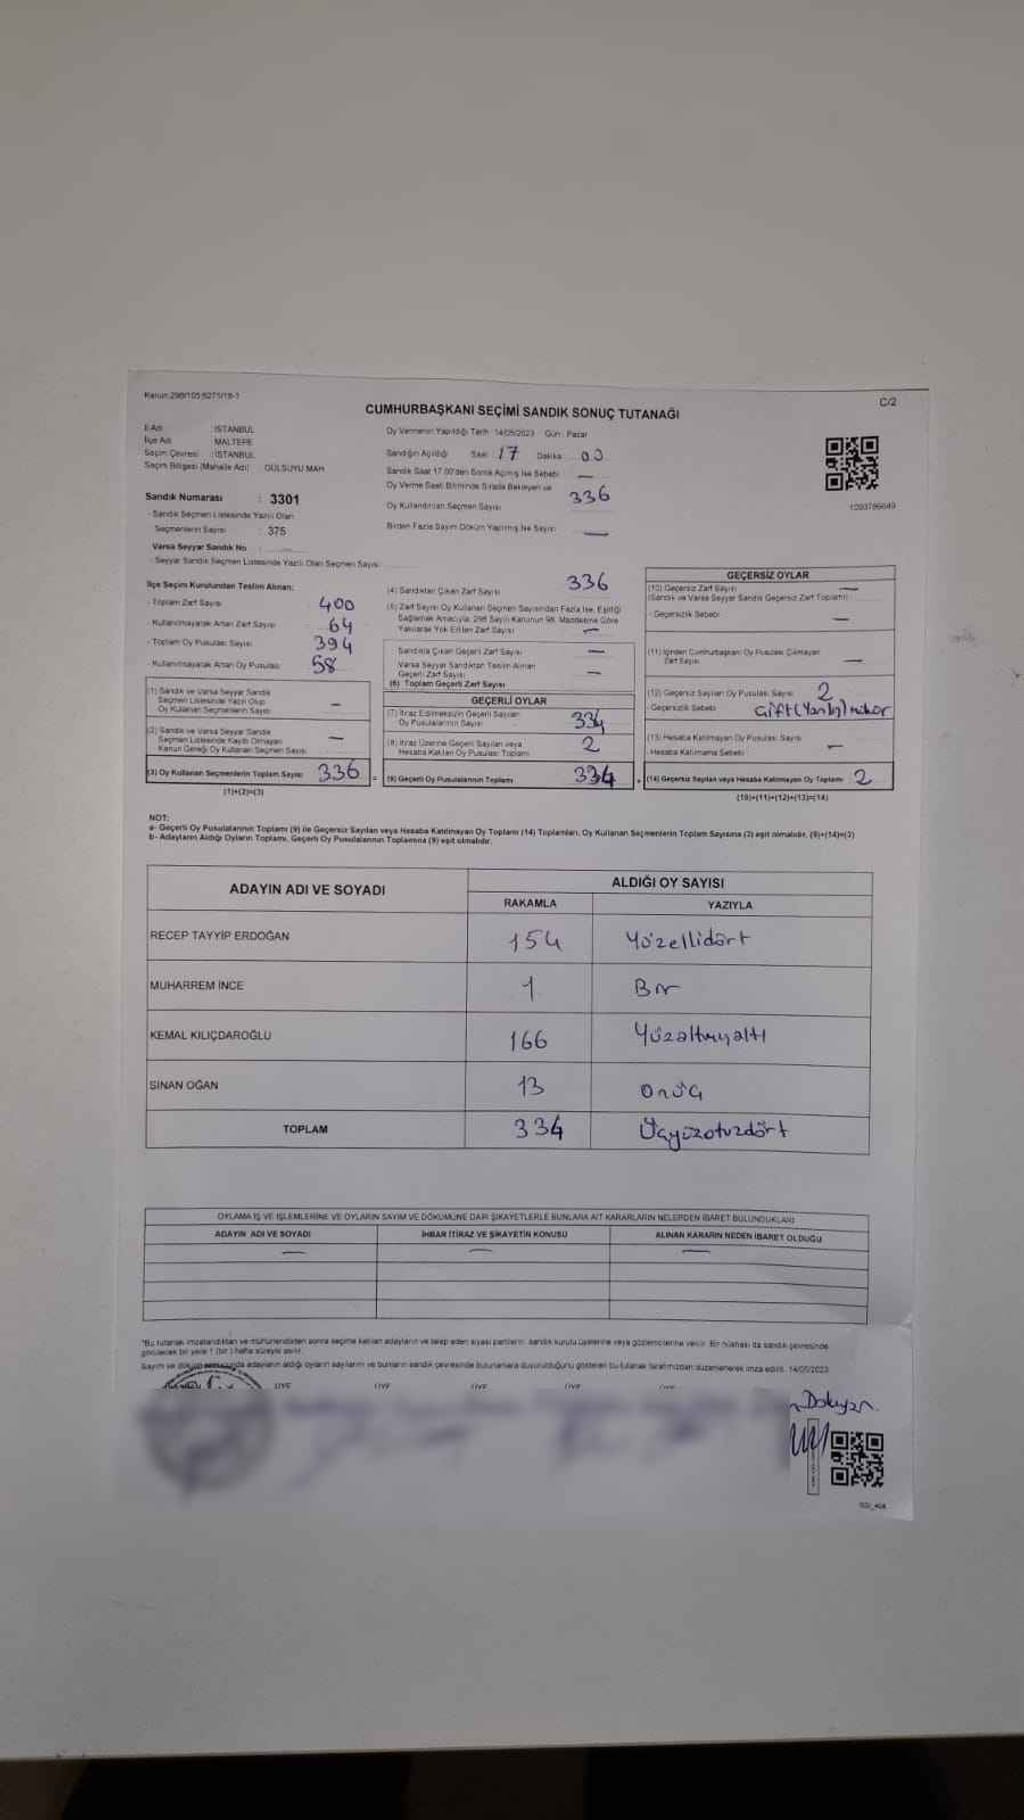 Kanun:298/105:6271/18-1
C/2
CUMHURBAŞKANI SEÇİMİ SANDIK SONUÇ TUTANAĞI
İl Adı : İSTANBUL
İlçe Adı : MALTEPE
Seçim Çevresi : İSTANBUL
Seçim Bölgesi (Mahalle Adı) : GÜLSUYU MAH
Sandık Numarası : 3301
- Sandık Seçmen Listesinde Yazılı Olan
Seçmenlerin Sayısı : 375
Varsa Seyyar Sandık No :
- Seyyar Sandık Seçmen Listesinde Yazılı Olan Seçmen Sayısı
Oy Vermenin Yapıldığı Tarih : 14/05/2023 Gün : Pazar
Sandığın Açıldığı Saat : 17 Dakika 00
Sandık Saat 17.00'den Sonra Açılmış İse Sebebi : —
Oy Verme Saati Bitiminde Sırada Bekleyen ve
Oy Kullandırılan Seçmen Sayısı 336
Birden Fazla Sayım Döküm Yapılmış İse Sayısı —
İlçe Seçim Kurulundan Teslim Alınan:
- Toplam Zarf Sayısı 400
- Kullanılmayarak Artan Zarf Sayısı 64
- Toplam Oy Pusulası Sayısı 394
- Kullanılmayarak Artan Oy Pusulası 58
(1) Sandık ve Varsa Seyyar Sandık
Seçmen Listesinde Yazılı Olup
Oy Kullanan Seçmenlerin Sayısı —
(2) Sandık ve Varsa Seyyar Sandık
Seçmen Listesinde Kayıtlı Olmayan
Kanun Gereği Oy Kullanan Seçmen Sayısı —
(3) Oy Kullanan Seçmenlerin Toplam Sayısı 336
(1)+(2)=(3)
(4) Sandıktan Çıkan Zarf Sayısı 336
(5) Zarf Sayısı Oy Kullanan Seçmen Sayısından Fazla İse, Eşitliği
Sağlamak Amacıyla, 298 Sayılı Kanunun 98. Maddesine Göre
Yakılarak Yok Edilen Zarf Sayısı —
Sandıkta Çıkan Geçerli Zarf Sayısı —
Varsa Seyyar Sandıktan Teslim Alınan
Geçerli Zarf Sayısı —
(6) Toplam Geçerli Zarf Sayısı
GEÇERLİ OYLAR
(7) İtiraz Edilmeksizin Geçerli Sayılan
Oy Pusulalarının Sayısı 334
(8) İtiraz Üzerine Geçerli Sayılan veya
Hesaba Katılan Oy Pusulası Toplamı 2
(9) Geçerli Oy Pusulalarının Toplamı 334
GEÇERSİZ OYLAR
(10) Geçersiz Zarf Sayısı —
(Sandık ve Varsa Seyyar Sandık Geçersiz Zarf Toplamı)
- Geçersizlik Sebebi —
(11) İçinden Cumhurbaşkanı Oy Pusulası Çıkmayan
Zarf Sayısı —
(12) Geçersiz Sayılan Oy Pusulası Sayısı 2
- Geçersizlik Sebebi çift(Yanlış)mühür
(13) Hesaba Katılmayan Oy Pusulası Sayısı —
- Hesaba Katılmama Sebebi
(14) Geçersiz Sayılan veya Hesaba Katılmayan Oy Toplamı 2
(10)+(11)+(12)+(13)=(14)
NOT:
a- Geçerli Oy Pusulalarının Toplamı (9) ile Geçersiz Sayılan veya Hesaba Katılmayan Oy Toplamı (14) Toplamları, Oy Kullanan Seçmenlerin Toplam Sayısına (3) eşit olmalıdır. (9)+(14)=(3)
b- Adayların Aldığı Oyların Toplamı, Geçerli Oy Pusulalarının Toplamına (9) eşit olmalıdır.
ADAYIN ADI VE SOYADI ALDIĞI OY SAYISI
RAKAMLA YAZIYLA
RECEP TAYYİP ERDOĞAN 154 Yüzellidört
MUHARREM İNCE 1 Bir
KEMAL KILIÇDAROĞLU 166 Yüzaltmışaltı
SİNAN OĞAN 13 Onüç
TOPLAM 334 Üçyüzotuzdört
OYLAMA İŞ VE İŞLEMLERİNE VE OYLARIN SAYIM VE DÖKÜMÜNE DAİR ŞİKAYETLERLE BUNLARA AİT KARARLARIN NELERDEN İBARET BULUNDUKLARI
ADAYIN ADI VE SOYADI İHBAR İTİRAZ VE ŞİKAYETİN KONUSU ALINAN KARARIN NEDEN İBARET OLDUĞU
— — —
*Bu tutanak imzalandıktan ve mühürlendikten sonra seçime katılan adayların ve talep eden siyasi partilerin, sandık kurulu üyelerine veya gözlemcilerine verilir. Bir nüshası da sandık çevresinde
görülecek bir yere 1 (bir) hafta süreyle asılır.
Sayım ve döküm sonucunda adayların aldığı oyların sayılarını ve bunların sandık çevresinde bulunanlara duyurulduğunu gösteren bu tutanak tarafımızdan düzenlenerek imza edildi. 14/05/2023
ÜYE ÜYE ÜYE ÜYE